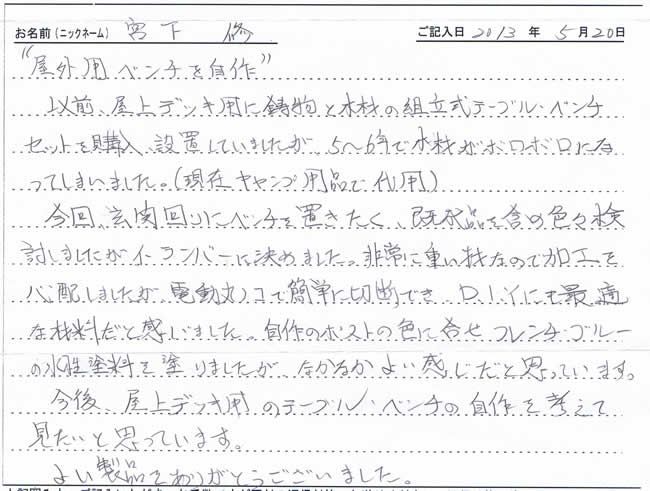 お名前(ニックネーム) 宮下 修 ご記入日 2013 年 5月20日
"屋外用ベンチを自作"
以前、屋上デッキ用に鋳物と木材の組立式テーブル・ベンチ
セットを購入、設置していましたが、5〜6年で木材がボロボロにな
ってしまいました。(現在キャンプ用品で代用)
今回、玄関回りにベンチを置きたく、既成品を含め色々検
討しましたがイーランバーに決めました。非常に重い材なので加工を
心配しましたが、電動丸ノコで簡単に切断でき、D.I.Yにも最適
な材料だと感じました。自作のポストの色に合せフレンチ・ブルー
の水性塗料を塗りましたが、なかなかよい感じだと思っています。
今後、屋上デッキ用のテーブル・ベンチの自作を考えて
見たいと思っています。
よい製品をありがとうございました。